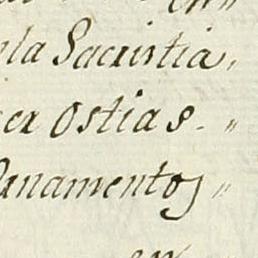 la Sacristia,
er Ostias. "
anamentos "
en